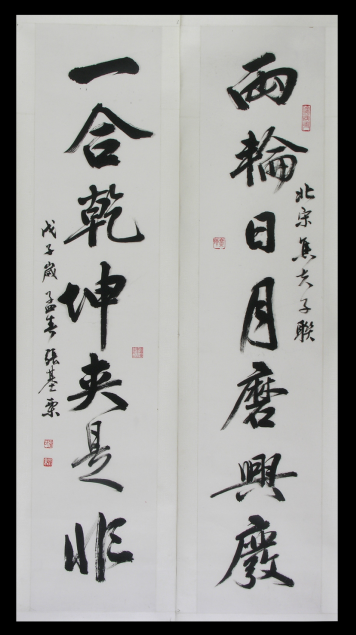 兩輪日月磨興廢
北宋焦夫子聯
一合乾坤夾是非
戊子歲孟春張基栗